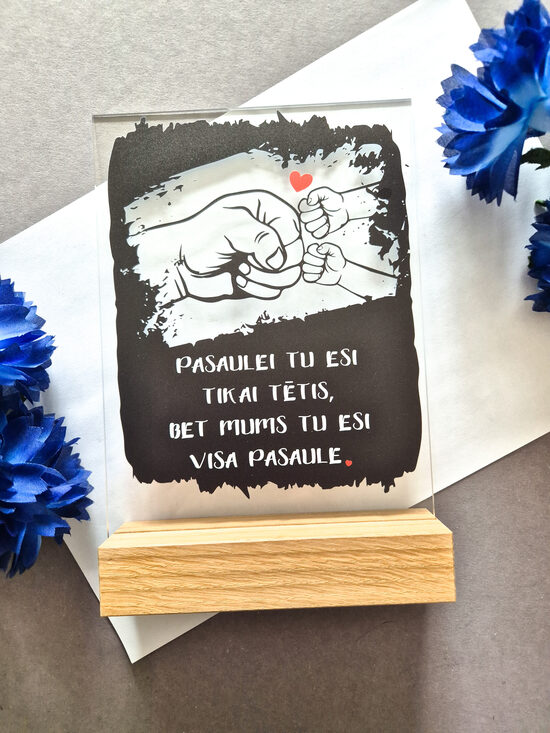 PASAULEI TU ESI
TIKAI TĒTIS,
BET MUMS TU ESI
VISA PASAULE.